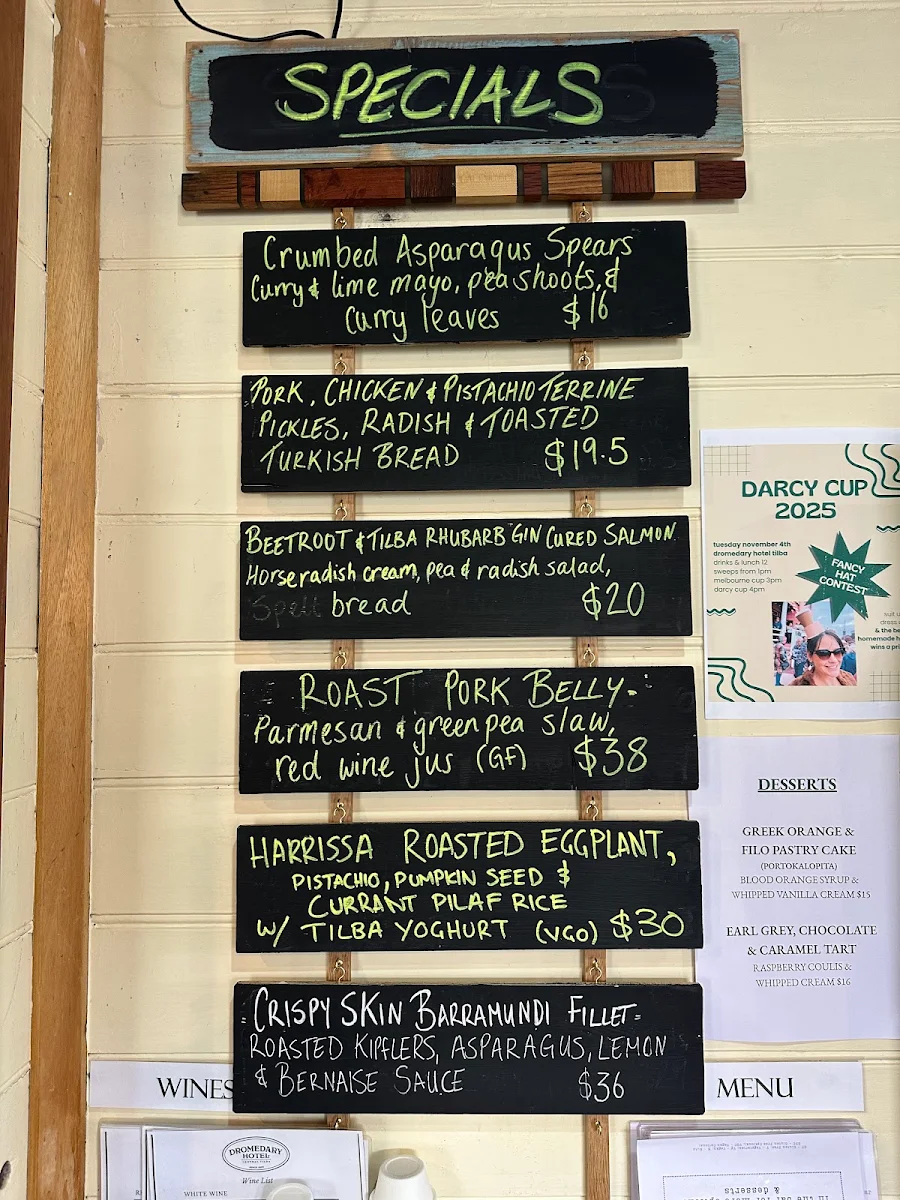 SPECIALS
Crumbed Asparagus Spears
Curry & lime mayo, pea shoots, &
Curry leaves $16
PORK, CHICKEN & PISTACHIO TERRINE
PICKLES, RADISH & TOASTED
TURKISH BREAD $19.5
BEETROOT & TILBA RHUBARB GIN CURED SALMON
Horseradish cream, pea & radish salad,
Spelt bread $20
ROAST PORK BELLY-
Parmesan & green pea slaw,
red wine jus (GF) $38
HARRISSA ROASTED EGGPLANT,
PISTACHIO, PUMPKIN SEED &
CURRANT PILAF RICE
W/ TILBA YOGHURT (VGO) $30
CRISPY SKIN BARRAMUNDI FILLET-
ROASTED KIPFLERS, ASPARAGUS, LEMON
& BERNAISE SAUCE $36
DARCY CUP
2025
tuesday november 4th
dromedary hotel tilba
drinks & lunch 12
sweeps from 1pm
melbourne cup 3pm
darcy cup 4pm
FANCY
HAT
CONTEST
suit u
dress
& the be
homemade h
wins a pri
DESSERTS
GREEK ORANGE &
FILO PASTRY CAKE
(PORTOKALOPITA)
BLOOD ORANGE SYRUP &
WHIPPED VANILLA CREAM $15
EARL GREY, CHOCOLATE
& CARAMEL TART
RASPBERRY COULIS &
WHIPPED CREAM $16
WINES
MENU
DROMEDARY
HOTEL
Wine List
WHITE WINE
& desserts